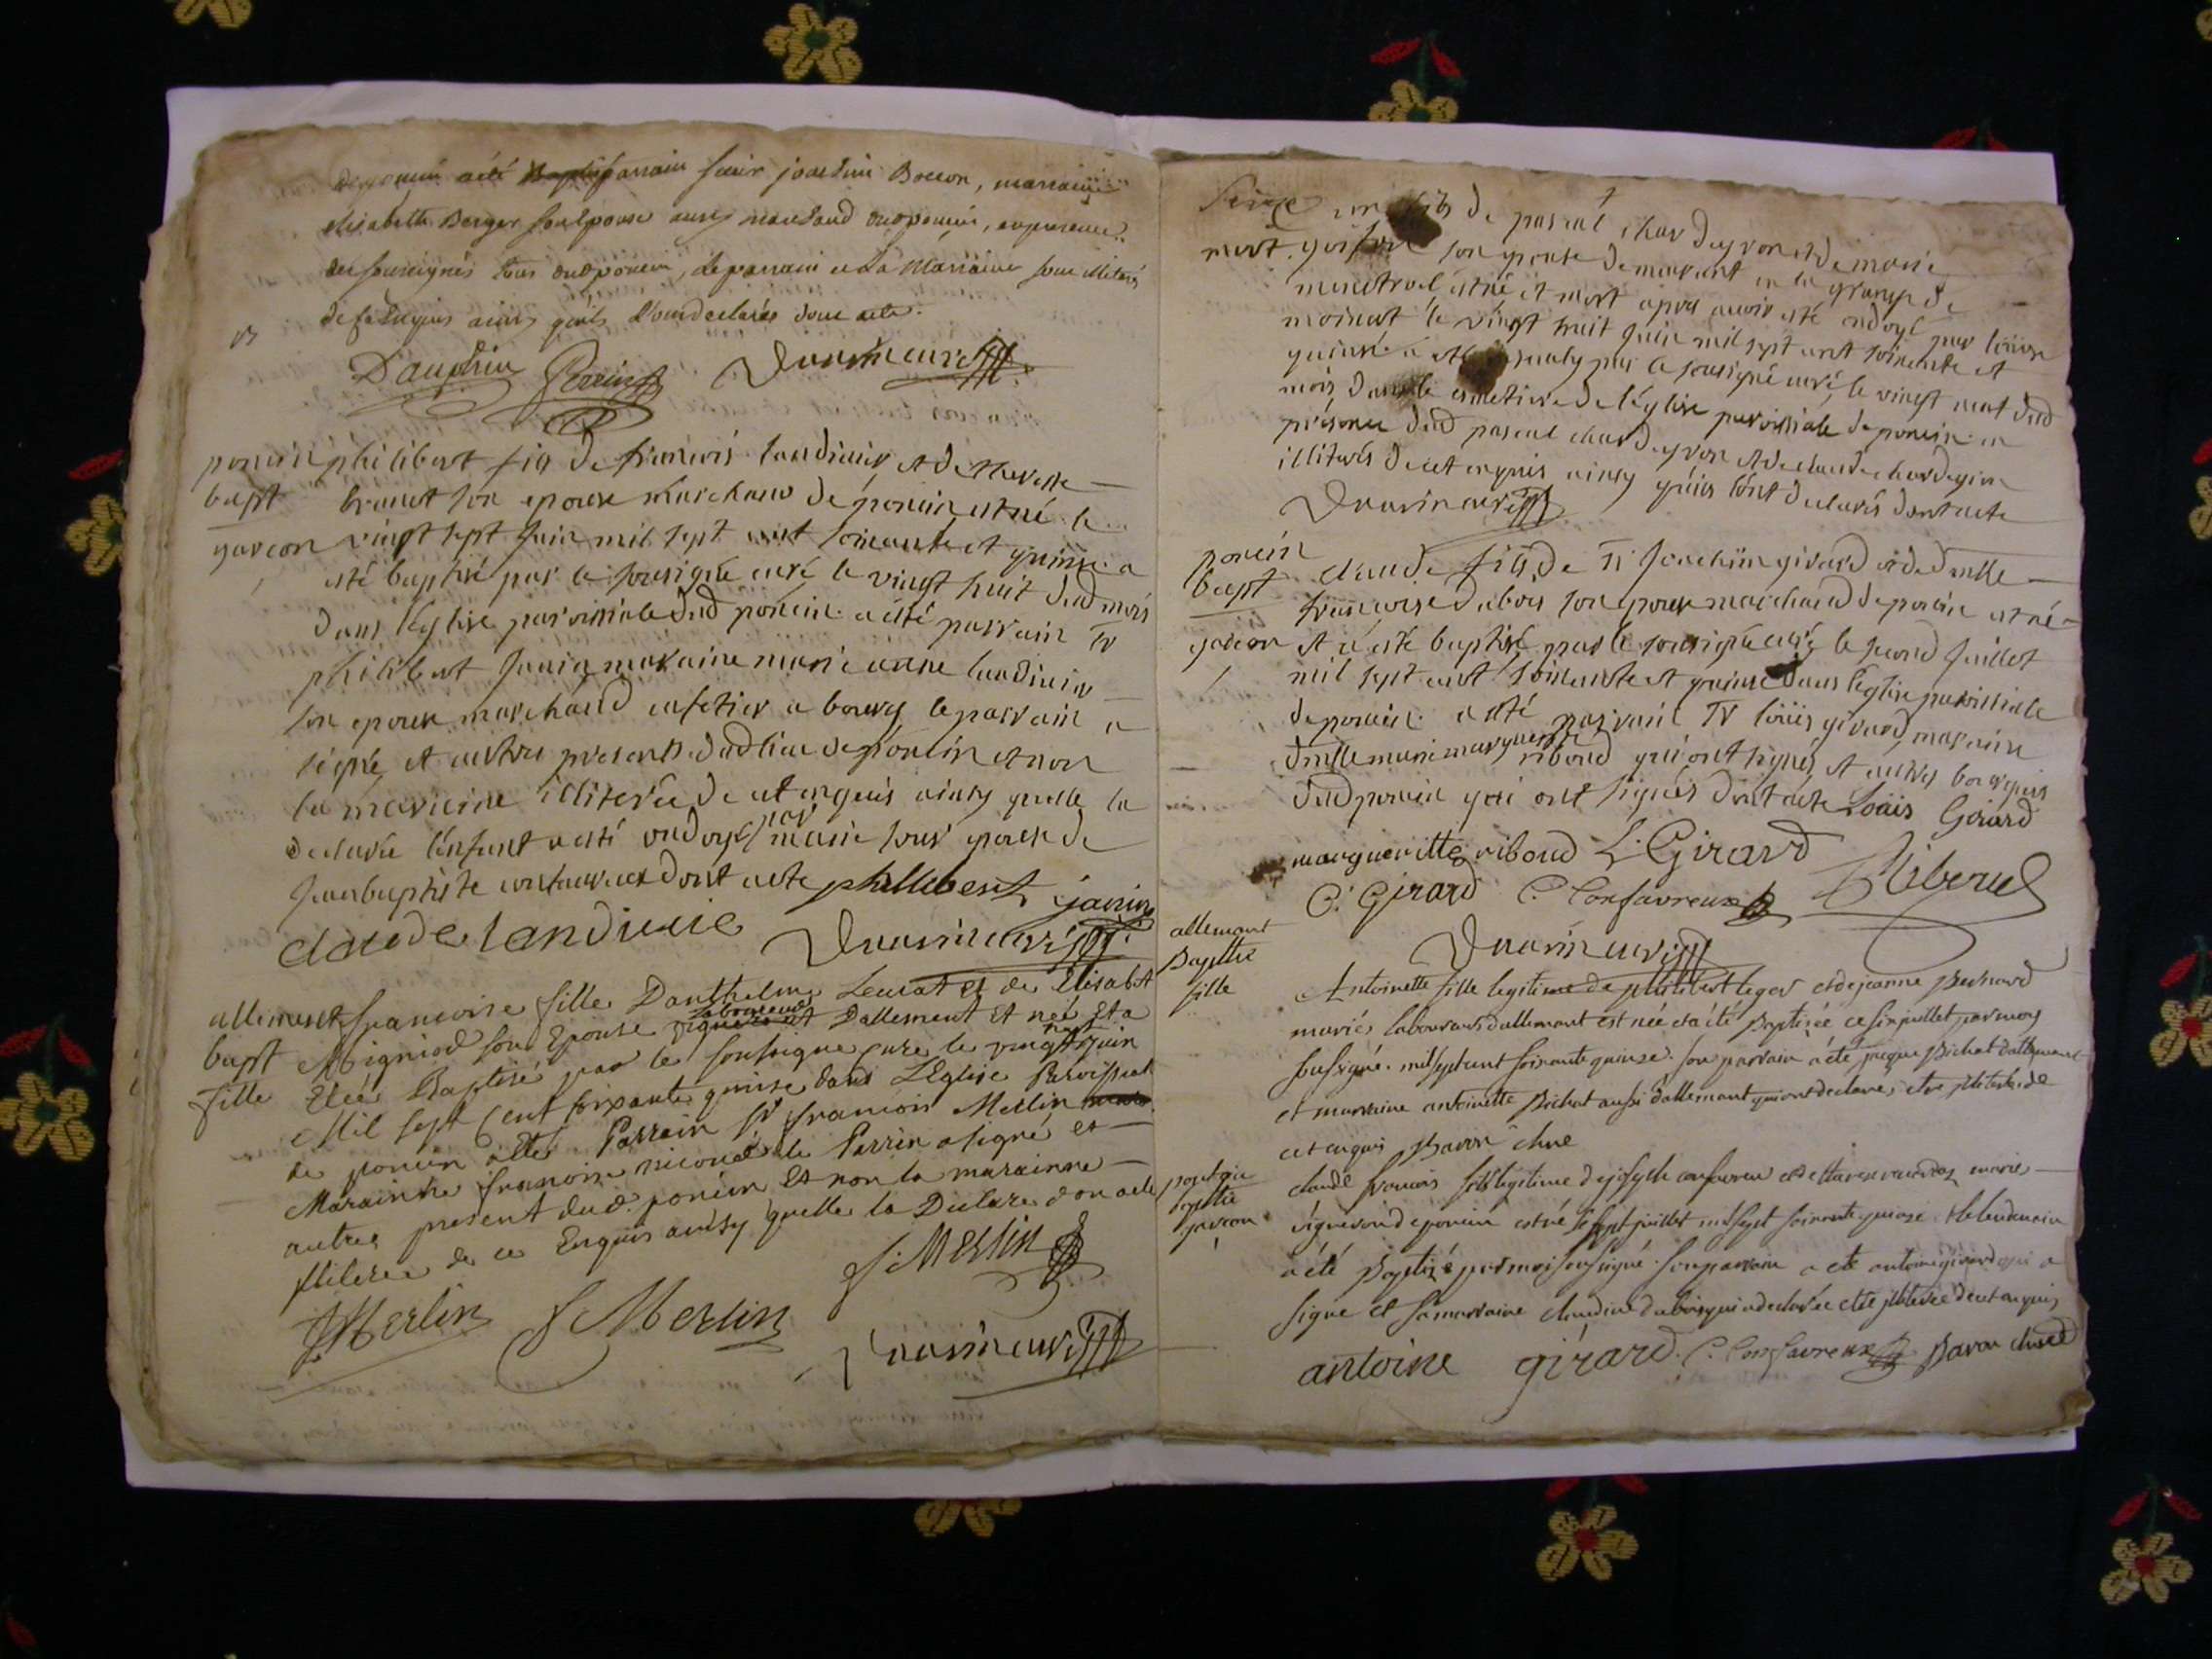 a été parrain sieur joachim Bocon, marraine
elisabeth Berger son epouse aussi marchand dud poncin, en presence
des soussignés tous dud poncin, le parrain et la Marraine sont illiterés
de ce enquis ainsy qu'ils l'ont declarés dont acte.
Dauphin Perrin curé
poncin philibert fils de francois landinier et de therese
bapt brunet son epouse marchand de poncin est né le
garcon vingt sept juin mil sept cent soixante et quinze a
esté baptisé par le sousigné curé le vingt huit dud mois
dans l'eglise parroissiale dud poncin a été parrain sr
philibert janin maraine marie anne landinier
son epouse marchand cafetier a bourg le parrain a
signé et autres presents dud lieu de poncin et non
la maraine illiterée de ce enquis ainsy quelle la
declarée l'enfant a esté ondoyé par marie sour epouse de
jean baptiste confavreux dont acte phillibert janin
claude landinie curé
allement francoise fille Danthelme Leurat et de Elisabet
bapt Migniod son Epouse laboureur Dallement Et née Et a
fille Etée Baptisé par le sousigné curé le vingt neuf juin
Mil sept Cent soixante quinse dans L'Eglise Paroissial
de poncin a été Parrain sr francois Merlin
Marainne francoise le Parrin a signé et
autres present dud. poncin Et non la marainne
illiteree de ce Enquis ainsy quelle la Declare don acte
f. Merlin
J Merlin f Merlin
curé
un fils de pascal chardeyron et de marie
mort. son epouse demeurant en la grange de
menetruel est né et mort apres avoir esté ondoyé par louise
moinat le vingt huit juin mil sept cent soixante et
quinse a esté par le sousigné curé, le vingt neuf dud
mois, dans le cimetiere de l'église parroissiale de poncin en
présence dud pascal chardeyron et de claude chardeyron
illiterés de ce enquis ainsy qu'ils l'ont declarés dont acte
curé
poncin
bapt claude fils de sr joachim girard et de dmlle
francoise dubois son epouse marchand de poncin est né
garcon et a esté baptisé par le sousigné curé le second juillet
mil sept cent soixante et quinse dans l'eglise parroissiale
de poncin. a été parrain sr louis girard, maraine
dmlle marie marguerite riboud qui ont signés et autres bourgeois
dud poncin qui ont signés dont acte Louis Girard
margueritte riboud L. Girard
C. Girard C. Confavreux
curé
allemant
Baptté Antoinette fille legitime de philibert leger et de jeanne Bernard
fille mariés laboureurs d'allemant est née et a été Baptisée ce six juillet par moy
sousigné. mil sept cent soixante quinze. son parrain a été jacque Bichat d'allemant
et marraine antoinette Bichat aussi d'allemant qui ont declarés etre illiterés de
ce enquis Baron
claude francois fils legitime de joseph confavreu et de marie
baptté vigneron de poncin est né le sept juillet mil sept soixante quinze et le lendemain
garcon a été Baptizé par moi sousigné. son parrain a été antoine girard qui a
signe et sa marraine claudine dubois qui a declarée etre illiteree de ce enquis
antoine girard. C. Confavreux Baron